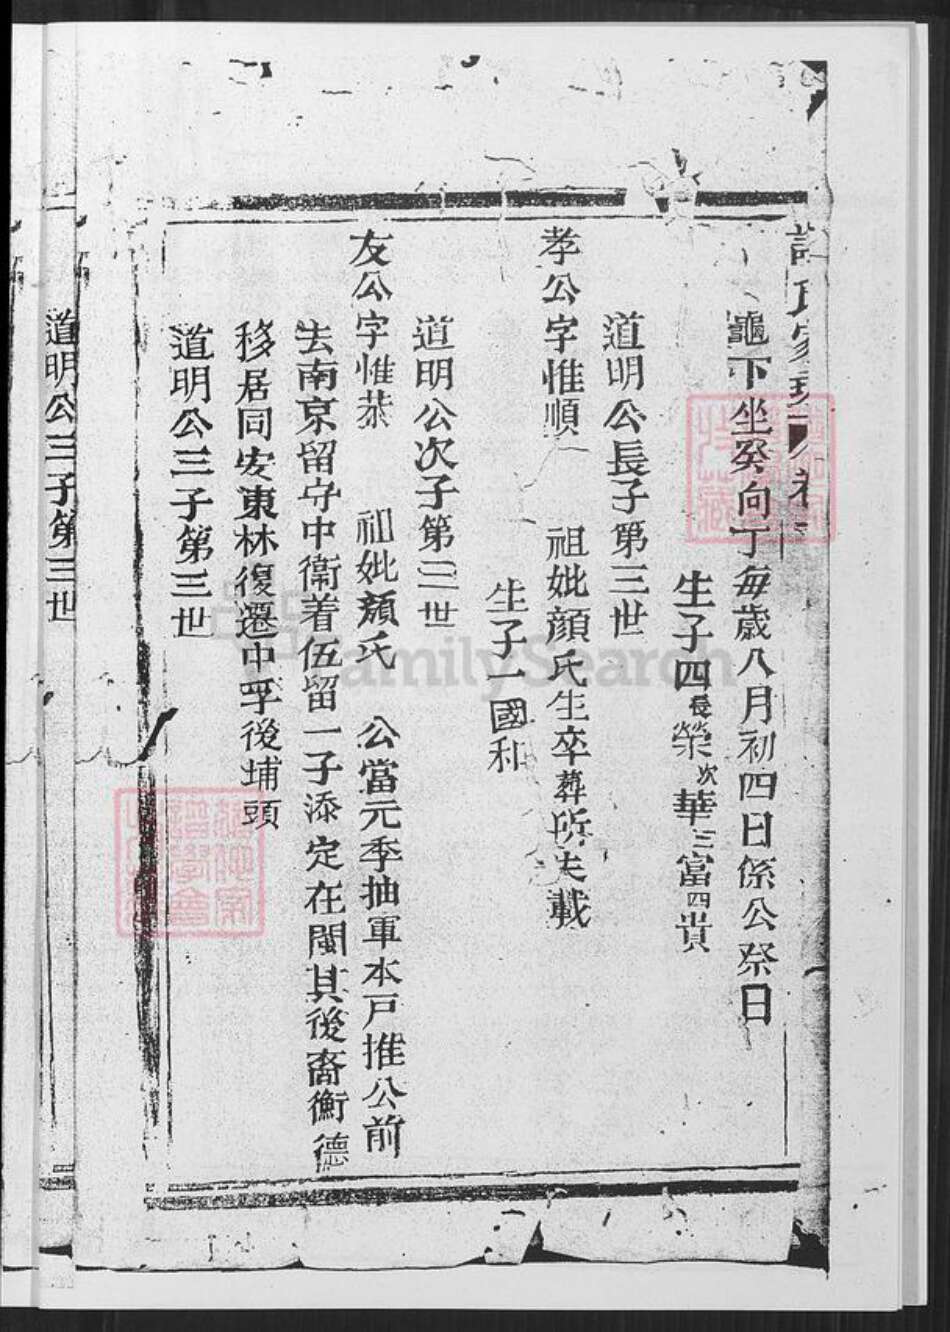 氏家
龜下坐癸向丁每歲八月初四日係公祭日
生子四長榮次華三富四貴
道明公長子第三世
孝公字惟順 祖妣顏氏生卒葬所失載
生子一國和
道明公次子第三世
友公字惟恭 祖妣顏氏 公當元季抽軍本戶推公前
去南京留守中衛着伍留一子添定在閩其後裔衡德
移居同安東林復遷中孚後埔頭
道明公三子第三世
道明公三子第三世
FamilySearch